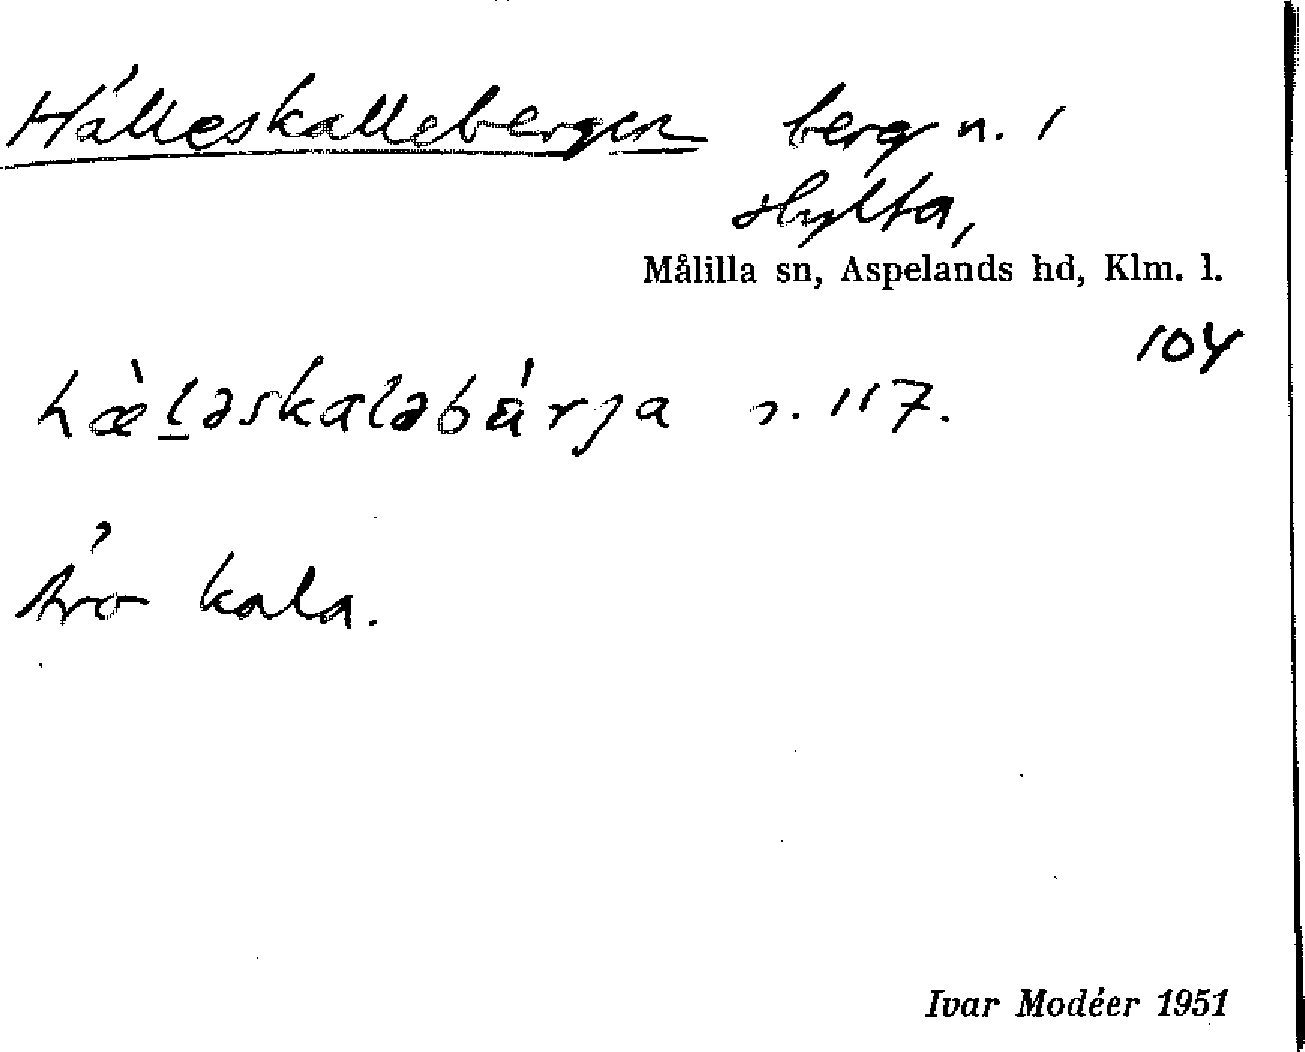 Hälleskallebergen berg n. i
Hylta,
Målilla sn, Aspelands hd, Klm. l.
104
hæ̀l̠əskaləbárja n. 117.
kala.
Ivar Modéer 1951